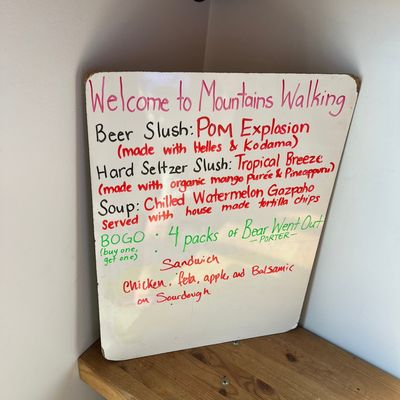 Welcome to Mountains Walking
Beer Slush: Pom Explosion
(made with Helles & Kodama)
Hard Seltzer Slush: Tropical Breeze
(made with organic mango purée & Pineappuru)
Soup: Chilled Watermelon Gazpaho
served with house made tortilla chips
BOGO : 4 packs of Bear Went Out
(buy one, get one) -PORTER-
Sandwich
Chicken, feta, apple, and Balsamic
on Sourdough